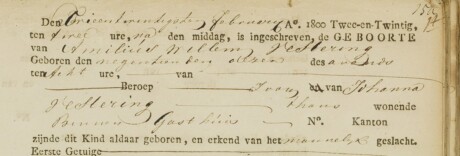 Den Drieentwintigste February Ao. 1800 Twee-en-Twintig,
ten twee ure, na den middag, is ingeschreven, de GEBOORTE
van Emilius Willem Vestering
Geboren den negentienden dezer des avonds
ten acht ure, van
Beroep en van Johanna
Vestering thans wonende
Binnen Gasthuis No. Kanton
zijnde dit Kind aldaar geboren, en erkend van het mannelijk geslacht.
Eerste Getuige